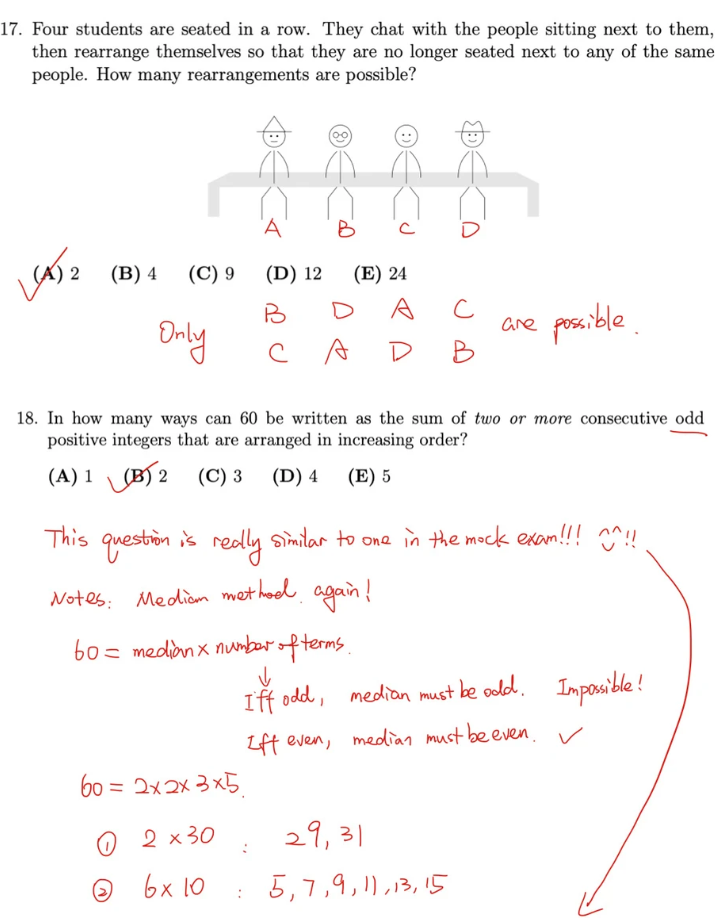 17. Four students are seated in a row. They chat with the people sitting next to them,
then rearrange themselves so that they are no longer seated next to any of the same
people. How many rearrangements are possible?
A B C D
(A) 2 (B) 4 (C) 9 (D) 12 (E) 24
Only B D A C are possible.
C A D B
18. In how many ways can 60 be written as the sum of two or more consecutive odd
positive integers that are arranged in increasing order?
(A) 1 (B) 2 (C) 3 (D) 4 (E) 5
This question is really similar to one in the mock exam!!! ^^!!
Notes: Median method again!
60 = median x number of terms.
↓
Iff odd, median must be odd. Impossible!
Iff even, median must be even. ✓
60 = 2x2x3x5.
① 2 x 30 : 29, 31
② 6 x 10 : 5, 7, 9, 11, 13, 15